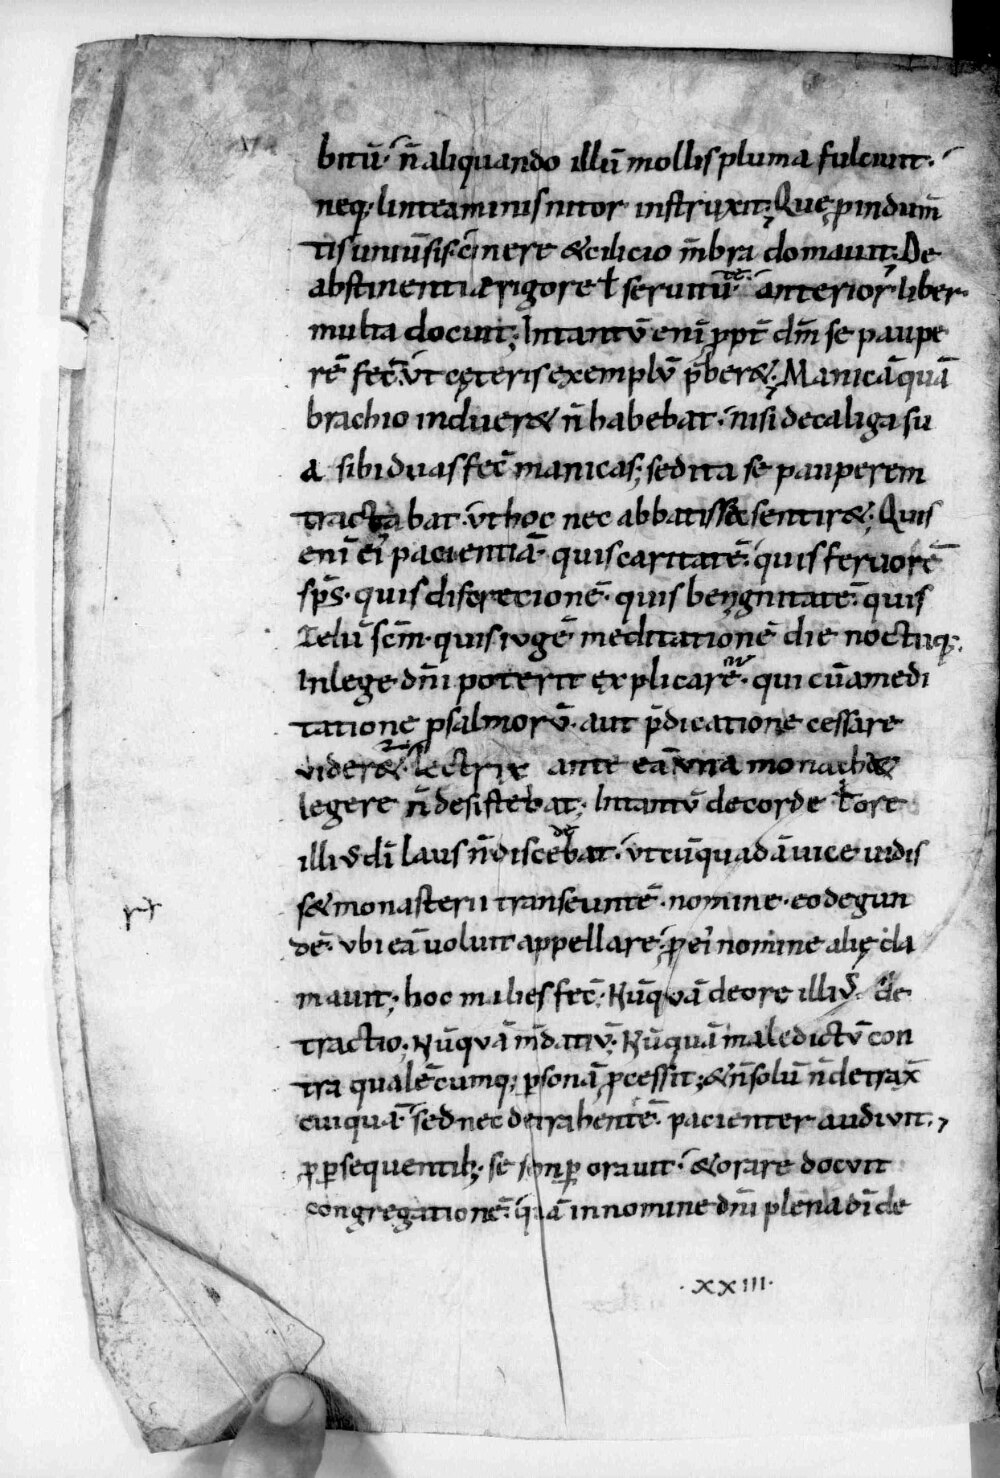 bitū· n̄ aliquando illū mollis pluma fulciuit·
neq; linteaminis nitor instruxit; Quę p indum̄
tis uniūsis cinere & cilicio m̄bra domauit; De
abstinentiæ rigore ł seruitūte· anterior liber·
multa docuit; Intantū eni ppt dn̄m se paupe
rē fec̄· ut cęteris exemplū p̄ber&; Manicā quā
brachio induer& n̄ habebat· nisi de caliga su
a sibi duas fec̄ manicas; sed ita se pauperem
tractabat· ut hoc nec abbatissæ sentir&; Quis
eni ei pacientiā· quis caritatē· quis feruorē
sp̄s· quis discretionē· quis benignitatē· quis
zelū sc̄m· quis iugē meditationē die noctuq;
In lege dn̄i poterit explicare· qui cū a medi
tatione psalmorū· aut p̄dicatione cessare
vider& lectrix ante eā una monacha
legere n̄ desistebat; Intantū de corde ł ore
illiū dī laus n̄ discedebat· ut cū quadā uice uidis
s& monasterii transeuntē· nomine· eodegun
dē· ubi eā uoluit appellare· p ei nomine alię cla
mauit; hoc milies fec̄; Nūquā de ore illiū· de
tractio; Nūquā m̄datiū; Nūquā maledictū con
tra qualēcumq; psonā pcessit; & n̄ solū n̄ detrax̄
cuiquā· sed nec detrahentē· pacienter audiuit·,
p psequentib; se semp orauit· & orare docuit
congregationē· quā in nomine dn̄i plena dī de
·XXIII·